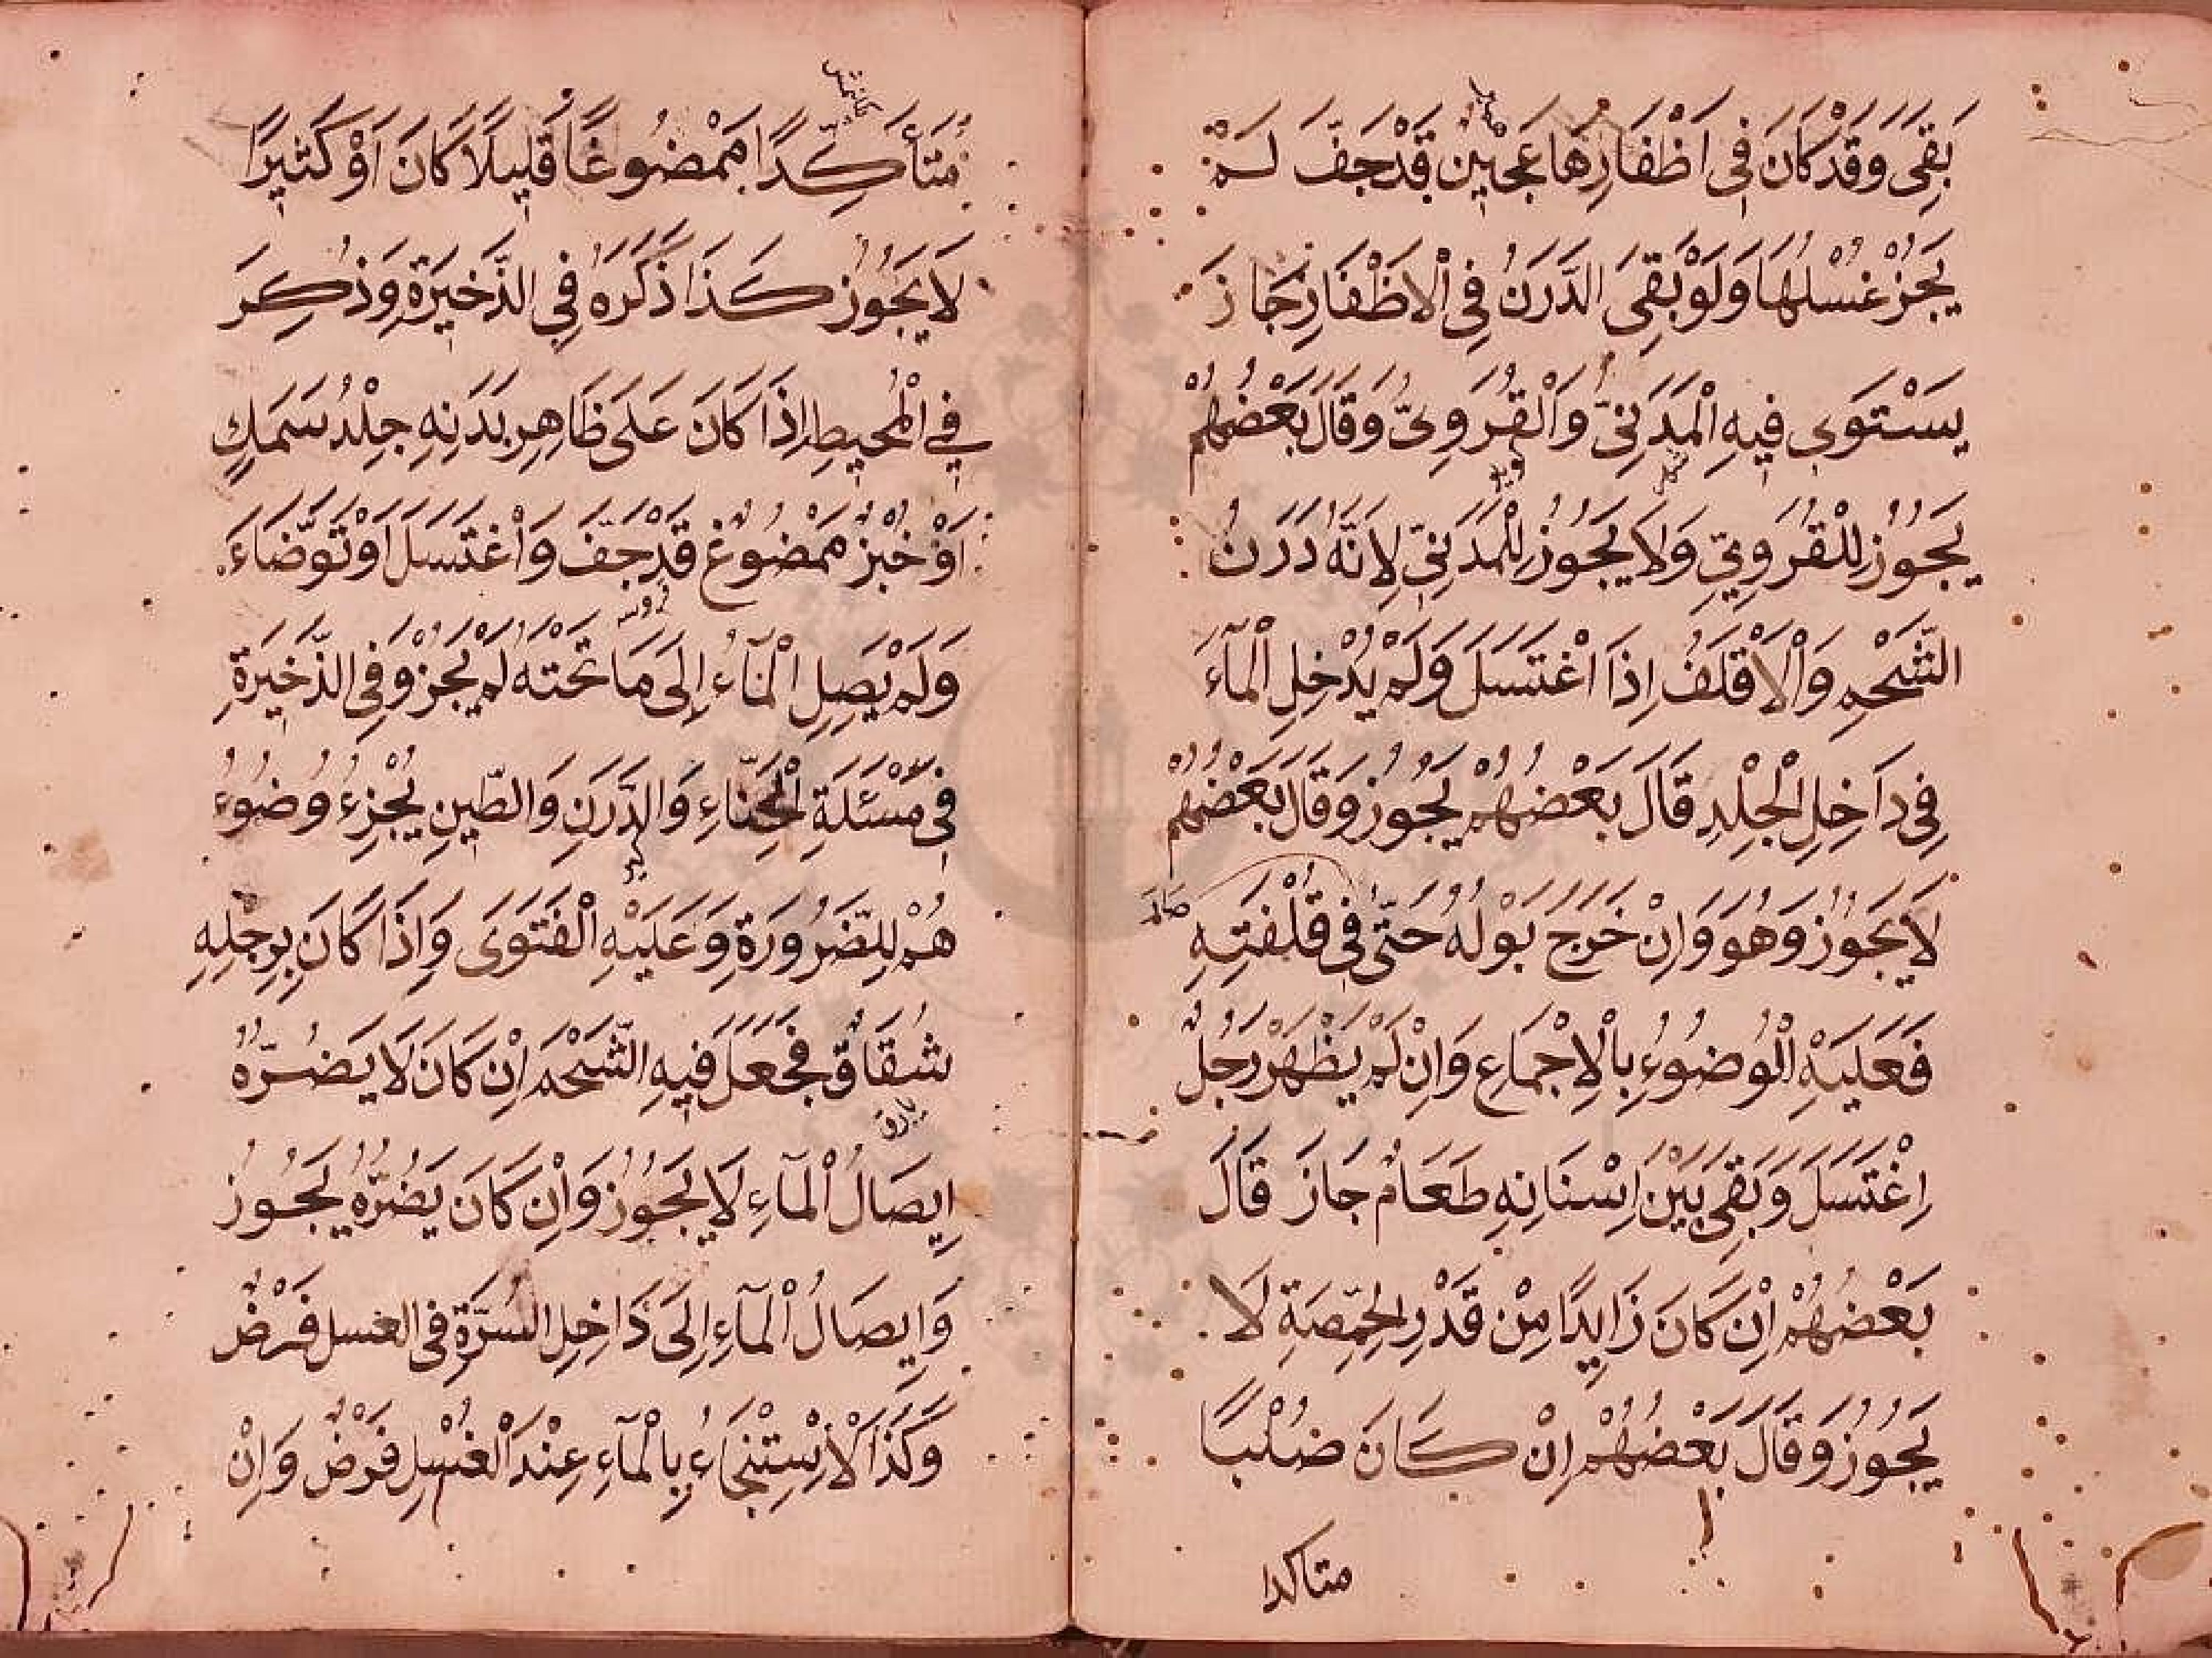 بَقِىَ وَقَدْ كَانَ فِى اَظْفَارِهَا عَجِينٌ قَدْ جَفَّ لَمْ
يَجُزْ غُسْلُهَا وَلَوْ بَقِىَ الدَّرَنُ فِى الْاَظْفَارِ جَازَ
يَسْتَوِى فِيهِ الْمَدَنِىُّ وَالْقُرَوِىُّ وَقَالَ بَعْضُهُمْ
يَجُوزُ لِلْقُرَوِىِّ وَلَا يَجُوزُ لِلْمَدَنِىِّ لِاَنَّهُ دَرَنُ
الشَّحْمِ وَالْاَقْلَفُ اِذَا اغْتَسَلَ وَلَمْ يُدْخِلِ الْمَآءَ
فِى دَاخِلِ الْجِلْدِ قَالَ بَعْضُهُمْ يَجُوزُ وَقَالَ بَعْضُهُمْ
لَا يَجُوزُ وَهُوَ وَاِنْ خَرَجَ بَوْلُهُ حَتّٰى فِى قُلْفَتِهِ
فَعَلَيْهِ الْوُضُوءُ بِالْاِجْمَاعِ وَاِنْ لَمْ يَظْهَرْ رَجُلٌ
اِغْتَسَلَ وَبَقِىَ بَيْنَ اِسْنَانِهِ طَعَامٌ جَازَ قَالَ
بَعْضُهُمْ اِنْ كَانَ زَايِدًا مِنْ قَدْرِ الْحِمَّصَةِ لَا
يَجُوزُ وَقَالَ بَعْضُهُمْ اِنْ كَانَ صُلْبًا
متاكدا
مُتَأَكِّدًا مَمْضُوغًا قَلِيلًا كَانَ اَوْ كَثِيرًا
لَا يَجُوزُ كَذَا ذَكَرَهُ فِى الذَّخِيرَةِ وَذُكِرَ
فِى الْمُحِيطِ اِذَا كَانَ عَلَى ظَاهِرِ بَدَنِهِ جِلْدُ سَمَكٍ
اَوْ خُبْزٌ مَمْضُوغٌ قَدْ جَفَّ وَاغْتَسَلَ اَوْ تَوَضَّاءَ
وَلَمْ يَصِلِ الْمَاءُ اِلَى مَا تَحْتَهُ لَمْ يَجُزْ وَفِى الذَّخِيرَةِ
فِى مَسْئَلَةِ الْحِنَّاءِ وَالدَّرَنِ وَالطِّينِ يُجْزِءُ وُضُوءُ
هُمْ لِلضَّرُورَةِ وَعَلَيْهِ الْفَتَوَى وَاِذَا كَانَ بِرِجْلِهِ
شُقَاقٌ فَجَعَلَ فِيهِ الشَّحْمَ اِنْ كَانَ لَا يَضُرُّهُ
اِيصَالُ الْمَآءِ لَا يَجُوزُ وَاِنْ كَانَ يَضُرُّهُ يَجُوزُ
وَاِيصَالُ الْمَآءِ اِلَى دَاخِلِ السُّرَّةِ فِى الغسل فَرْضٌ
وَكَذَا الْاِسْتِنْجَاءُ بِالْمَآءِ عِنْدَ الْغُسْلِ فَرْضٌ وَاِنْ